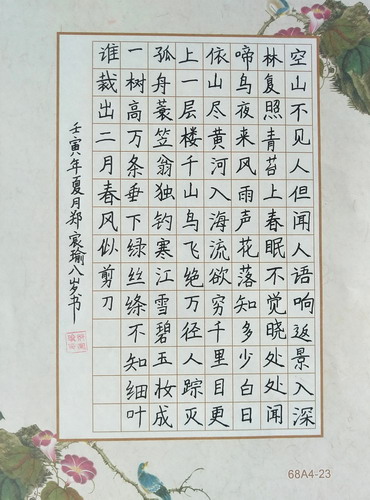 空山不见人但闻人语响返景入深
林复照青苔上春眠不觉晓处处闻
啼鸟夜来风雨声花落知多少白日
依山尽黄河入海流欲穷千里目更
上一层楼千山鸟飞绝万径人踪灭
孤舟蓑笠翁独钓寒江雪碧玉妆成
一树高万条垂下绿丝绦不知细叶
谁裁出二月春风似剪刀
壬寅年夏月郑宸瑜八岁书
68A4-23